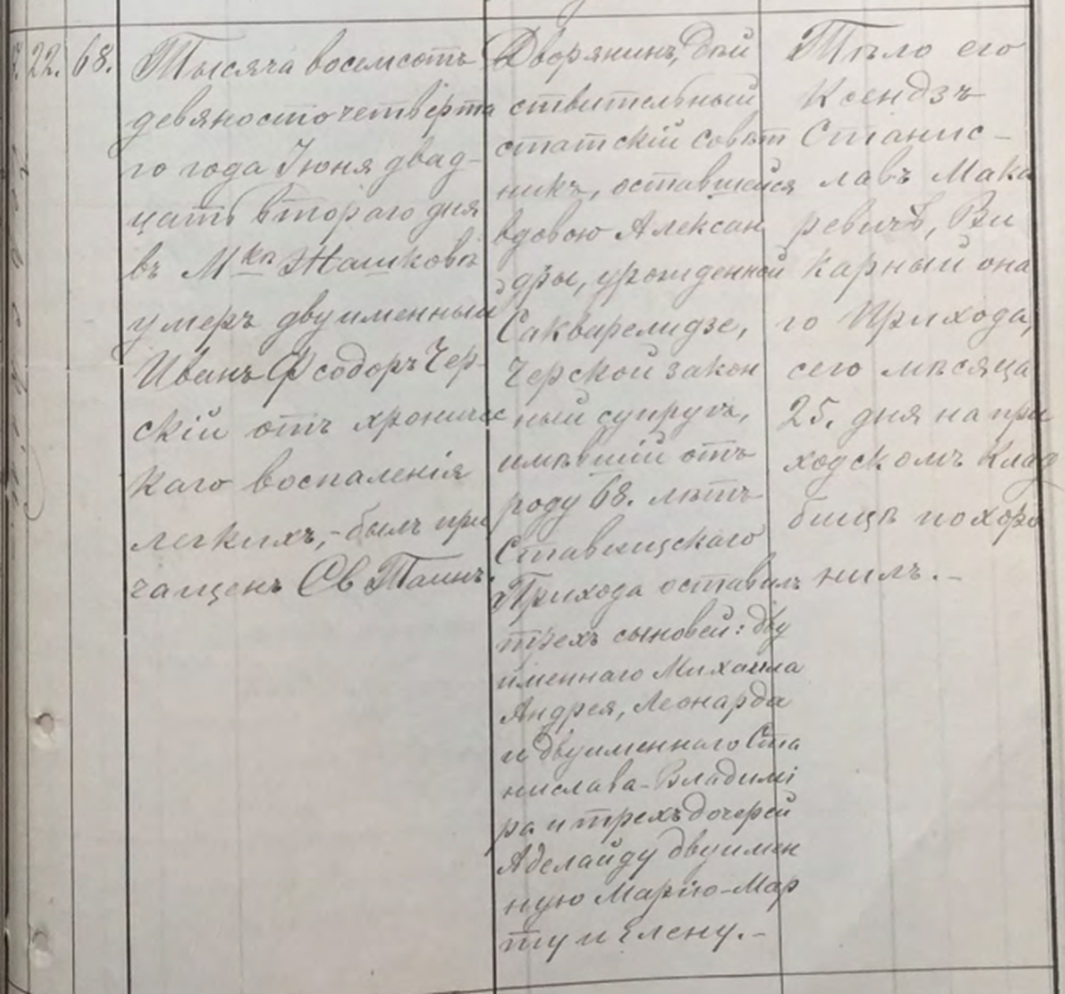 22. 68.
Тысяча восемсотъ
девяносто четвёрта
го года Іюня двад-
цать втораго дня
въ Мка Жашковѣ
умеръ двуименный
Иванъ Ѳеодоръ Чер-
скій отъ хроничес
каго воспаленія
легкихъ,- былъ при
чащенъ Св Таинъ.
Дворянинъ, дѣй
ствительный
статскій совѣт
никъ, оставшейся
вдовою Алексан
дры, урожденной
Сакварелидзе,
Черской закон
ный супругъ,
имѣвшій отъ
роду 68. лѣтъ
Ставищскаго
Прихода оставилъ
трехъ сыновей: дву
именнаго Михаила
Андрея, Леонарда
и двуименнаго Ста
нислава-Владимі
ра и трехъ дочерей
Аделаиду двуимен
ную Марію-Мар
ту и Елену.-
Тѣло его
Ксендзъ
Станис-
лавъ Мака
ревичъ, Ви
карный она
го Прихода,
сего мѣсяца
25. дня на при
ходскомъ Клад
бищѣ похоро
нилъ.-